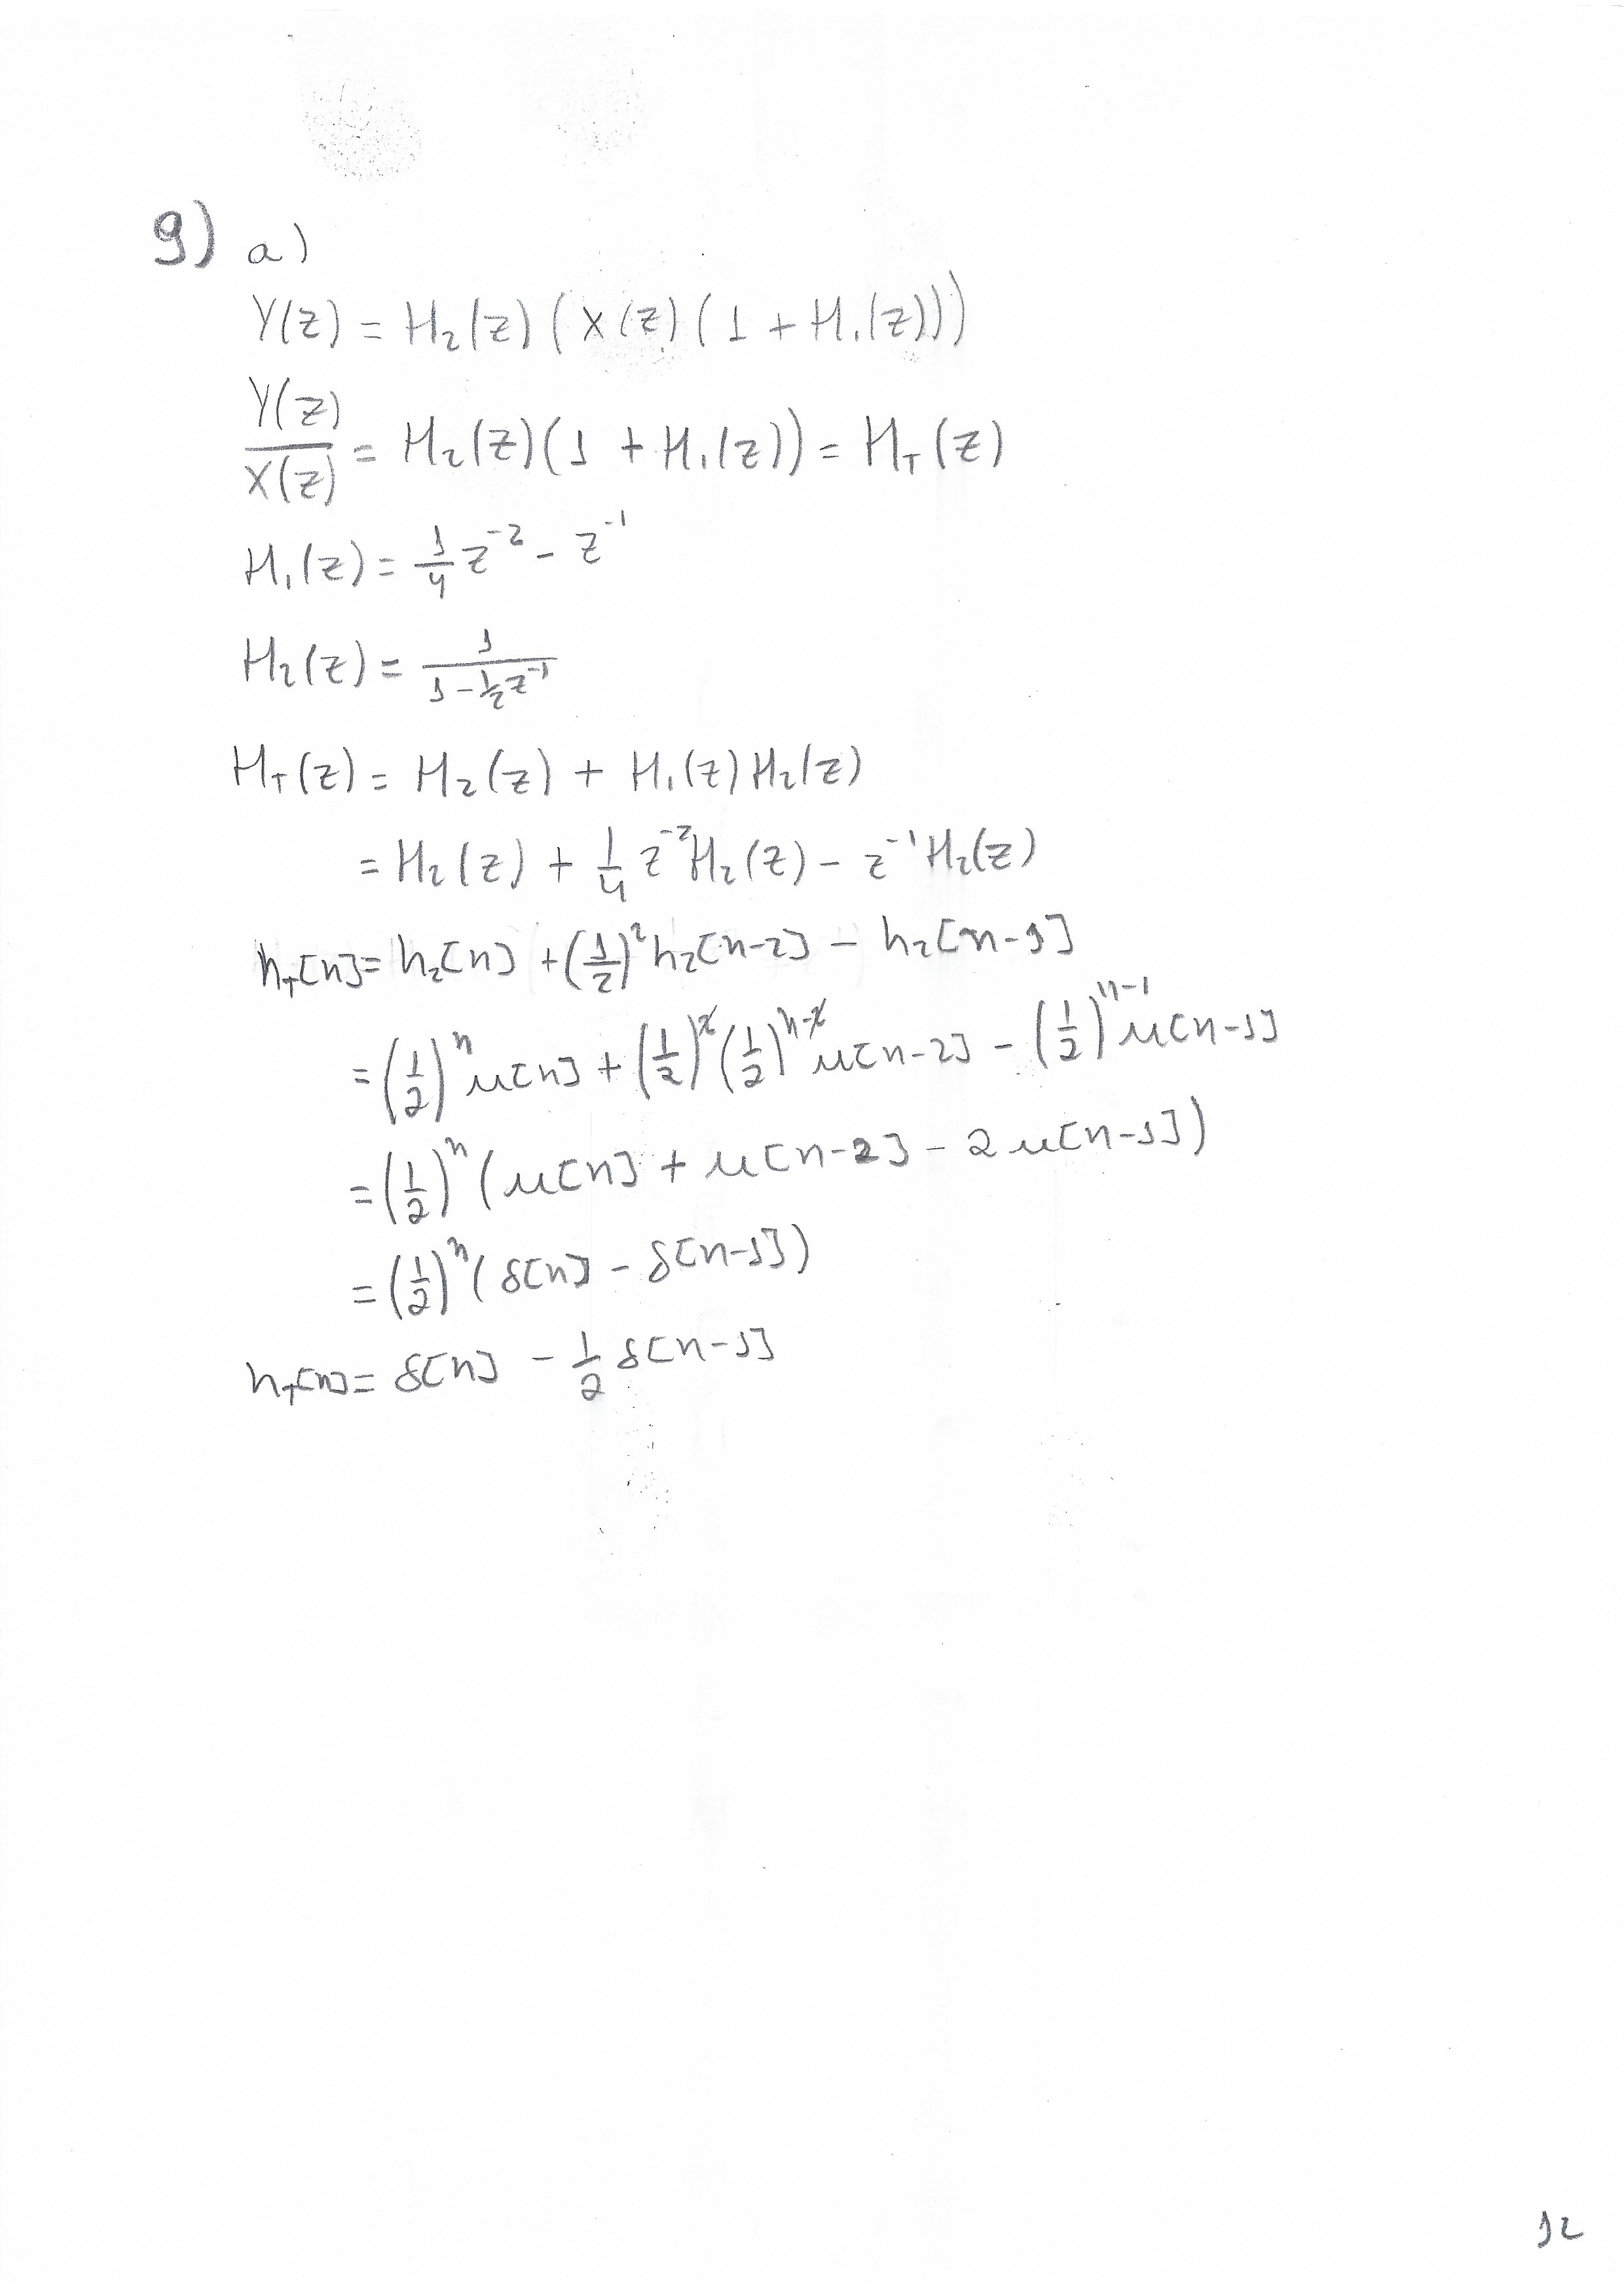 9) a)
Y(z) = H₂(z) (X(z) (1 + H₁(z)))
Y(z)/X(z) = H₂(z)(1 + H₁(z)) = H_T(z)
H₁(z) = 1/4 z⁻² - z⁻¹
H₂(z) = 1/(1 - 1/2 z⁻¹)
H_T(z) = H₂(z) + H₁(z) H₂(z)
= H₂(z) + 1/4 z⁻² H₂(z) - z⁻¹ H₂(z)
h_T[n] = h₂[n] + (1/2)² h₂[n-2] - h₂[n-1]
= (1/2)ⁿ u[n] + (1/2)² (1/2)ⁿ⁻² u[n-2] - (1/2)ⁿ⁻¹ u[n-1]
= (1/2)ⁿ (u[n] + u[n-2] - 2 u[n-1])
= (1/2)ⁿ (δ[n] - δ[n-1])
h_T[n] = δ[n] - 1/2 δ[n-1]
12